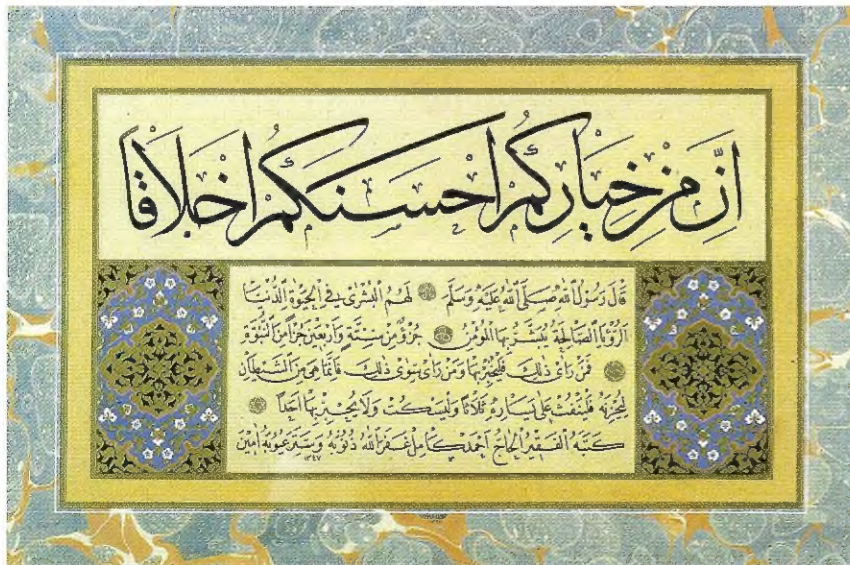 اِنَّ مِنْ خِيَارِكُمْ اَحْسَنَكُمْ اَخْلَاقًا
قَالَ رَسُولُ اللهِ صَلَّى اللهُ عَلَيْهِ وَسَلَّمَ لَهُمُ الْبُشْرَى فِي الْحَيٰوةِ الدُّنْيَا
اَلرُّؤْيَا الصَّالِحَةُ يُبَشَّرُ بِهَا الْمُؤْمِنُ جُزْؤٌ مِنْ سِتَّةٍ وَاَرْبَعِينَ جُزْأً مِنَ النُّبُوَّةِ
فَمَنْ رَاٰى ذٰلِكَ فَلْيُخْبِرْ بِهَا وَمَنْ رَاٰى سِوٰى ذٰلِكَ فَاِنَّمَا هِىَ مِنَ الشَّيْطَانِ
لِيُحْزِنَهُ فَلْيَنْفُثْ عَلٰى يَسَارِهِ ثَلَاثًا وَلْيَسْكُتْ وَلَا يُخْبِرْ بِهَا اَحَدًا
كَتَبَهُ الْفَقِيرُ الْحَاجّ اَحْمَدْ كَامِلْ غَفَرَ اللهُ ذُنُوبَهُ وَسَتَرَ عُيُوبَهُ اٰمِينْ
١٣٤٧